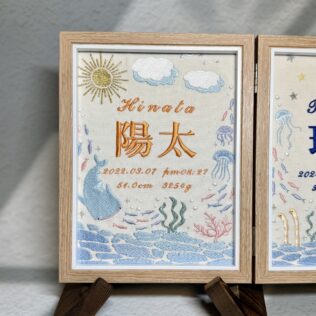 Hinata
陽太
2022.03.07 pm08:27
51.0cm 3256g